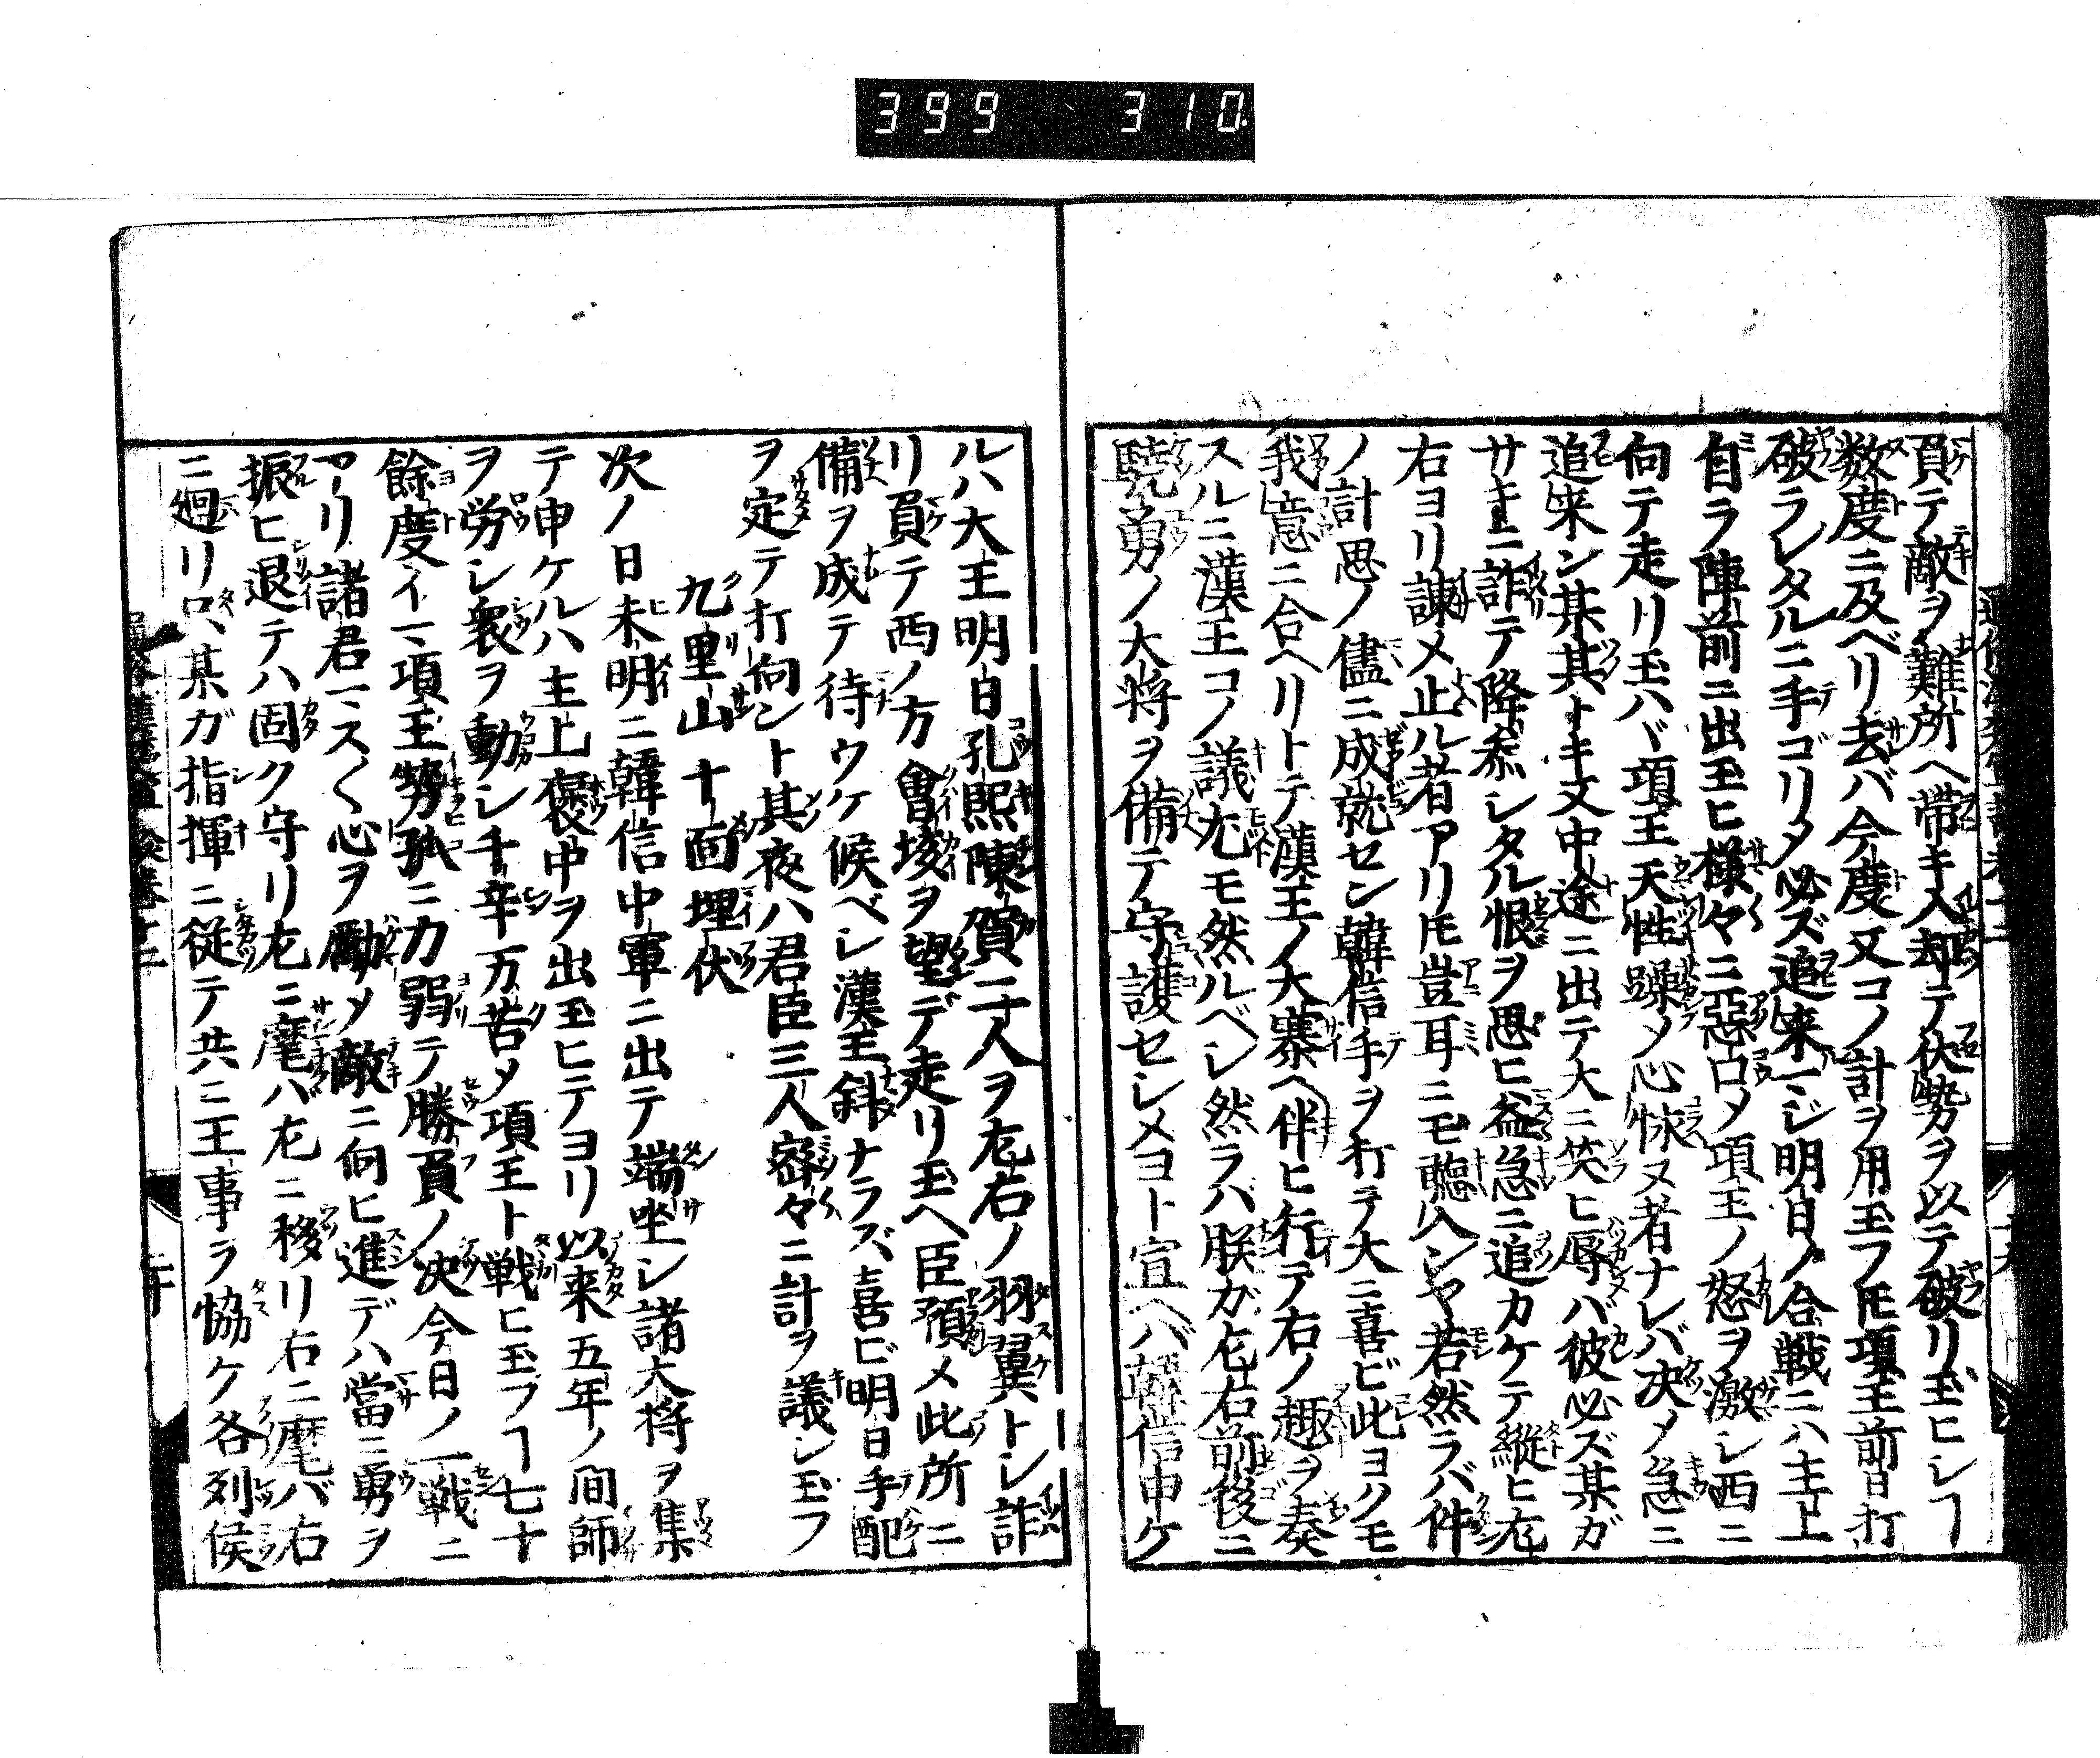 399 310
負テ敵ヲ難所ヘ帯キ入却テ伏勢ヲ以テ破リ玉ヒシヿ
数度ニ及ベリ去バ今度又コノ計ヲ用玉フ𪜈項王前日打
破ラレタルニ手ゴリメ必ズ追来マジ明日ノ合戦ニハ主上
自ラ陣前ニ出玉ヒ様々ニ惡口メ項王ノ怒ヲ激シ西ニ
向テ走リ玉ハバ項王天性躁メ心悷ヌ者ナレバ决メ急ニ
追来ン某其トキ又中途ニ出テ大ニ笑ヒ辱バ彼必ズ某ガ
サキニ詐テ降叅シタル恨ヲ思ヒ益急ニ追カケテ縦ヒ左
右ヨリ諫メ止ル者アリ𪜈豈耳ニモ聽ハンヤ若然ラバ件
ノ計思ノ儘ニ成就セン韓信手ヲ打テ大ニ喜ビ此ヨクモ
我意ニ合ヘリトテ漢王ノ大寨ヘ伴ヒ行テ右ノ趣ヲ奏
スルニ漢王コノ議尤モ然ルベシ然ラハ朕カ左右前後ニ
驍勇ノ大将ヲ備テ守護セシメヨト宣ヘバ韓信申ケ
ルハ大王明日孔熈陳賀二人ヲ左右ノ羽翼トシ詐
リ負テ西ノ方會垓ヲ望デ走リ玉ヘ臣預メ此所ニ
備ヲ成テ待ウケ候ベシ漢王斜ナラズ喜ビ明日手配
ヲ定テ打向ント其夜ハ君臣三人密々ニ計ヲ議シ玉フ
九里山十面埋伏
次ノ日未明ニ韓信中軍ニ出テ端坐シ諸大将ヲ集
テ申ケルハ主上褒中ヲ出玉ヒテヨリ以来五年ノ間師
ヲ労シ衆ヲ動シ千辛万苦メ項王ト戦ヒ玉フヿ七十
餘度イマ項王勢孤ニ力弱テ勝負ノ决今日ノ一戦ニ
アリ諸君マスく心ヲ勵メ敵ニ向ヒ進デハ當ニ勇ヲ
振ヒ退テハ固ク守リ左ニ麾バ左ニ移リ右ニ麾バ右
ニ廻リ只某ガ指揮ニ従テ共ニ王事ヲ協ケ各列侯